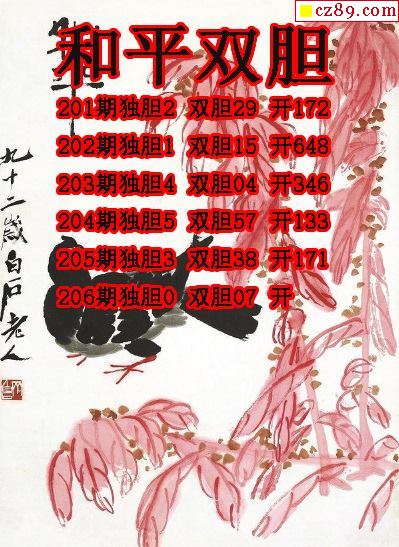 cz89.com
和平双胆
201期独胆2 双胆29 开172
202期独胆1 双胆15 开648
203期独胆4 双胆04 开346
204期独胆5 双胆57 开133
205期独胆3 双胆38 开171
206期独胆0 双胆07 开
九十二岁白石老人